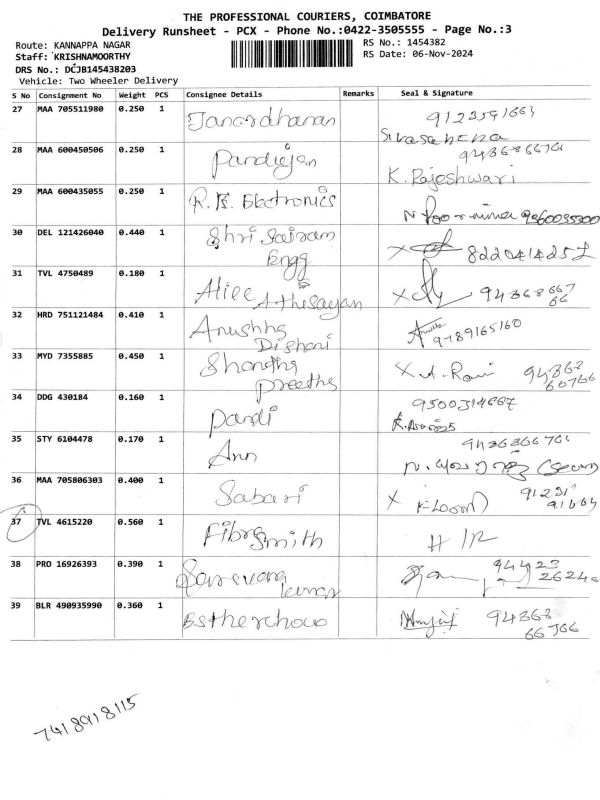 THE PROFESSIONAL COURIERS, COIMBATORE
Delivery Runsheet - PCX - Phone No.:0422-3505555 - Page No.:3
Route: KANNAPPA NAGAR
RS No.: 1454382
Staff: KRISHNAMOORTHY
RS Date: 06-Nov-2024
DRS No.: DCJB145438203
Vehicle: Two Wheeler Delivery
S No Consignment No Weight PCS Consignee Details Remarks Seal & Signature
27 MAA 705511980 0.250 1 Janardhanan 9123591663
28 MAA 600450506 0.250 1 Pandiejan
K. Rajeshwari
29 MAA 600435055 0.250 1 R.K. Electronics
30 DEL 121426040 0.440 1 Shri Sairam
Engg
31 TVL 4750489 0.180 1 Aliee Athisayan X 94368667
66
32 HRD 751121484 0.410 1 Anushha
9789165160
33 MYD 7355885 0.450 1 Shandha
Preetha
X A. Rani 94362
66766
34 DDG 430184 0.160 1 Pandi 9500314667
35 STY 6104478 0.170 1 Ann
36 MAA 705806303 0.400 1 Sabari X
37 TVL 4615220 0.560 1 Fibro Smith
38 PRO 16926393 0.390 1 Saravana
kumar
94423
26240
39 BLR 490935990 0.360 1 Esther 94363
66766
7418918115